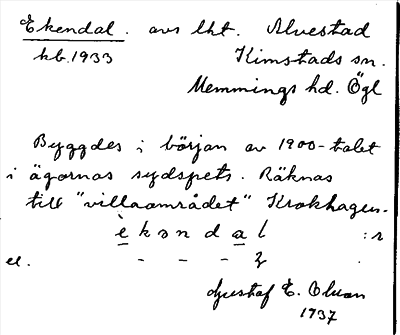 Ekendal. avs lht. Alvestad
kb. 1933 Kimstads sn.
Memmings hd. Ögl
Byggdes i början av 1900-talet
i ägornas sydspets. Räknas
till "villaområdet" Krokhagen.
è k ə n d a l :r
el. - - - ɮ
Gustaf E. Olson
1937